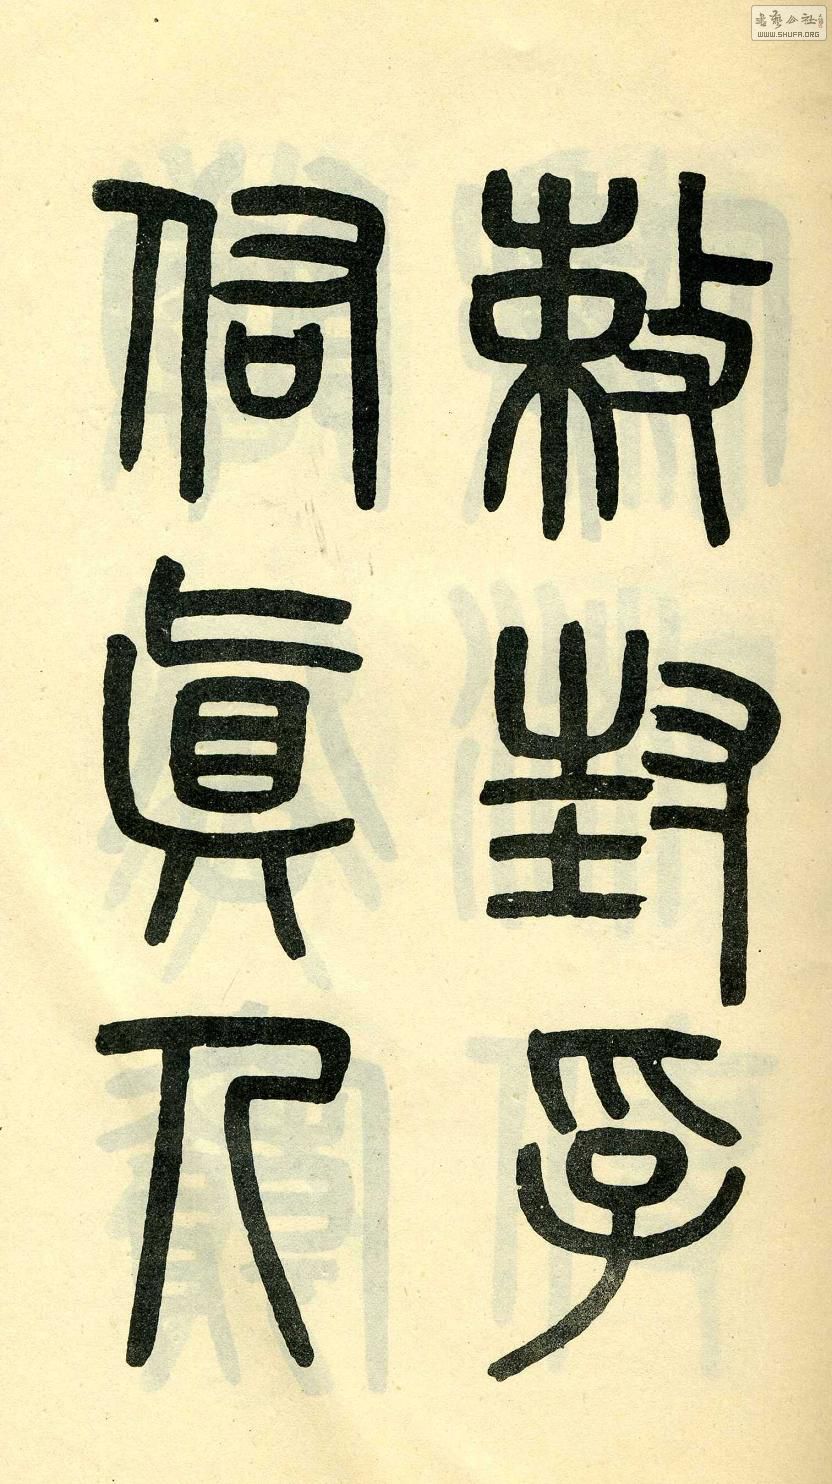 敕封孚
佑眞人
書藝公社
WWW.SHUFA.ORG